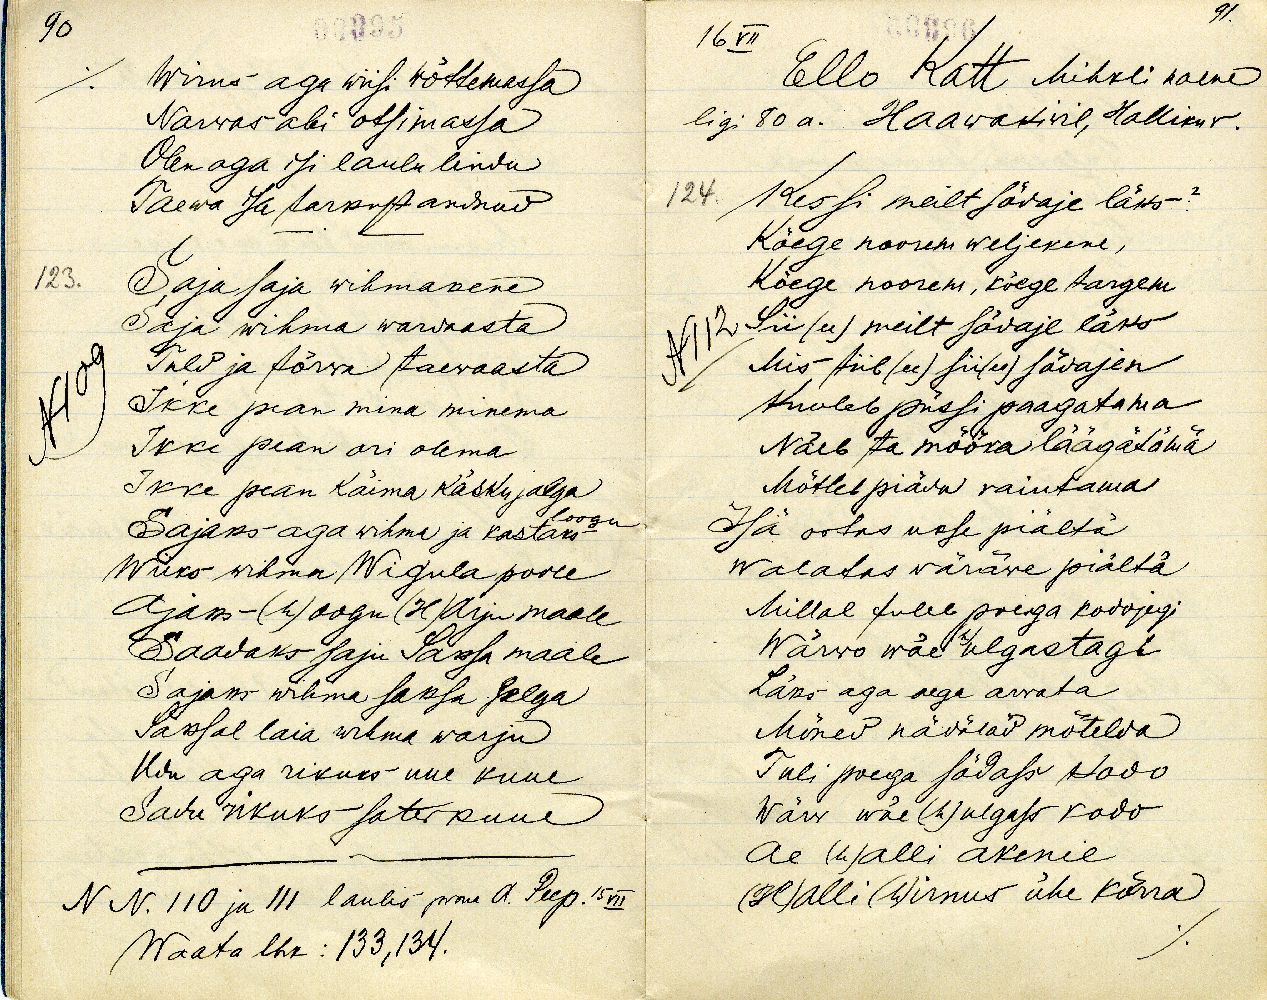 90
./.
Wirus aga wiisi wõttemassa
Narwas abi otsimassa
Olen aga isi laulu lindu
Taewa Isa tarkust andnud
123.
Saja, saja wihmakene
Saja wihma wardaasta
Tuld ja tõrwa taewaasta
N109
Ikke pean mina minema
Ikke pean ori olema
Ikke pean käima käsku jalga
Sajaks aga wihma ja kastaks loogu
Wiiks wihma Wigula poole
Ajaks (h)oogu (H)Arju maale
Saadaks saju Saksa maale
Sajaks wihma saksa selga
Saksal laia wihma warju
Udu aga rikuks uue kuue
Sadu rikuks sater kuue
N N. 110 ja 111 laulis A. Peep. 15 VII
Waata lhk: 133, 134.
91.
16 VII
Ello Katt Mihkli naene
ligi 80 a. Haawakiwil, Hallikus.
124.
Kes si meilt sõdaje läks?
Kõege noorem weljekene,
Kõege noorem, kõege targem
N112
Sii (ee) meilt sõdaje läks
Mis tiib (ee) sii (ee) sõdajen
Kuuleb püssi paagatama
Näeb ta mõõka läägätämä
Mõtleb piäda raiutama
Isä ootas usse piältä
Walatas wäräwe piältä
Millal tuleb poega kodojegi
Wärwo wäe (h)ulgastagi
Läks aga aega arwata
Mõned nädälad mõtelda
Tuli poega sõdass kodo
Wärw wäe (h)ulgass kodo
Ae (h)alli akenie
(H)alli (W)irnus ühe kõrra
./.